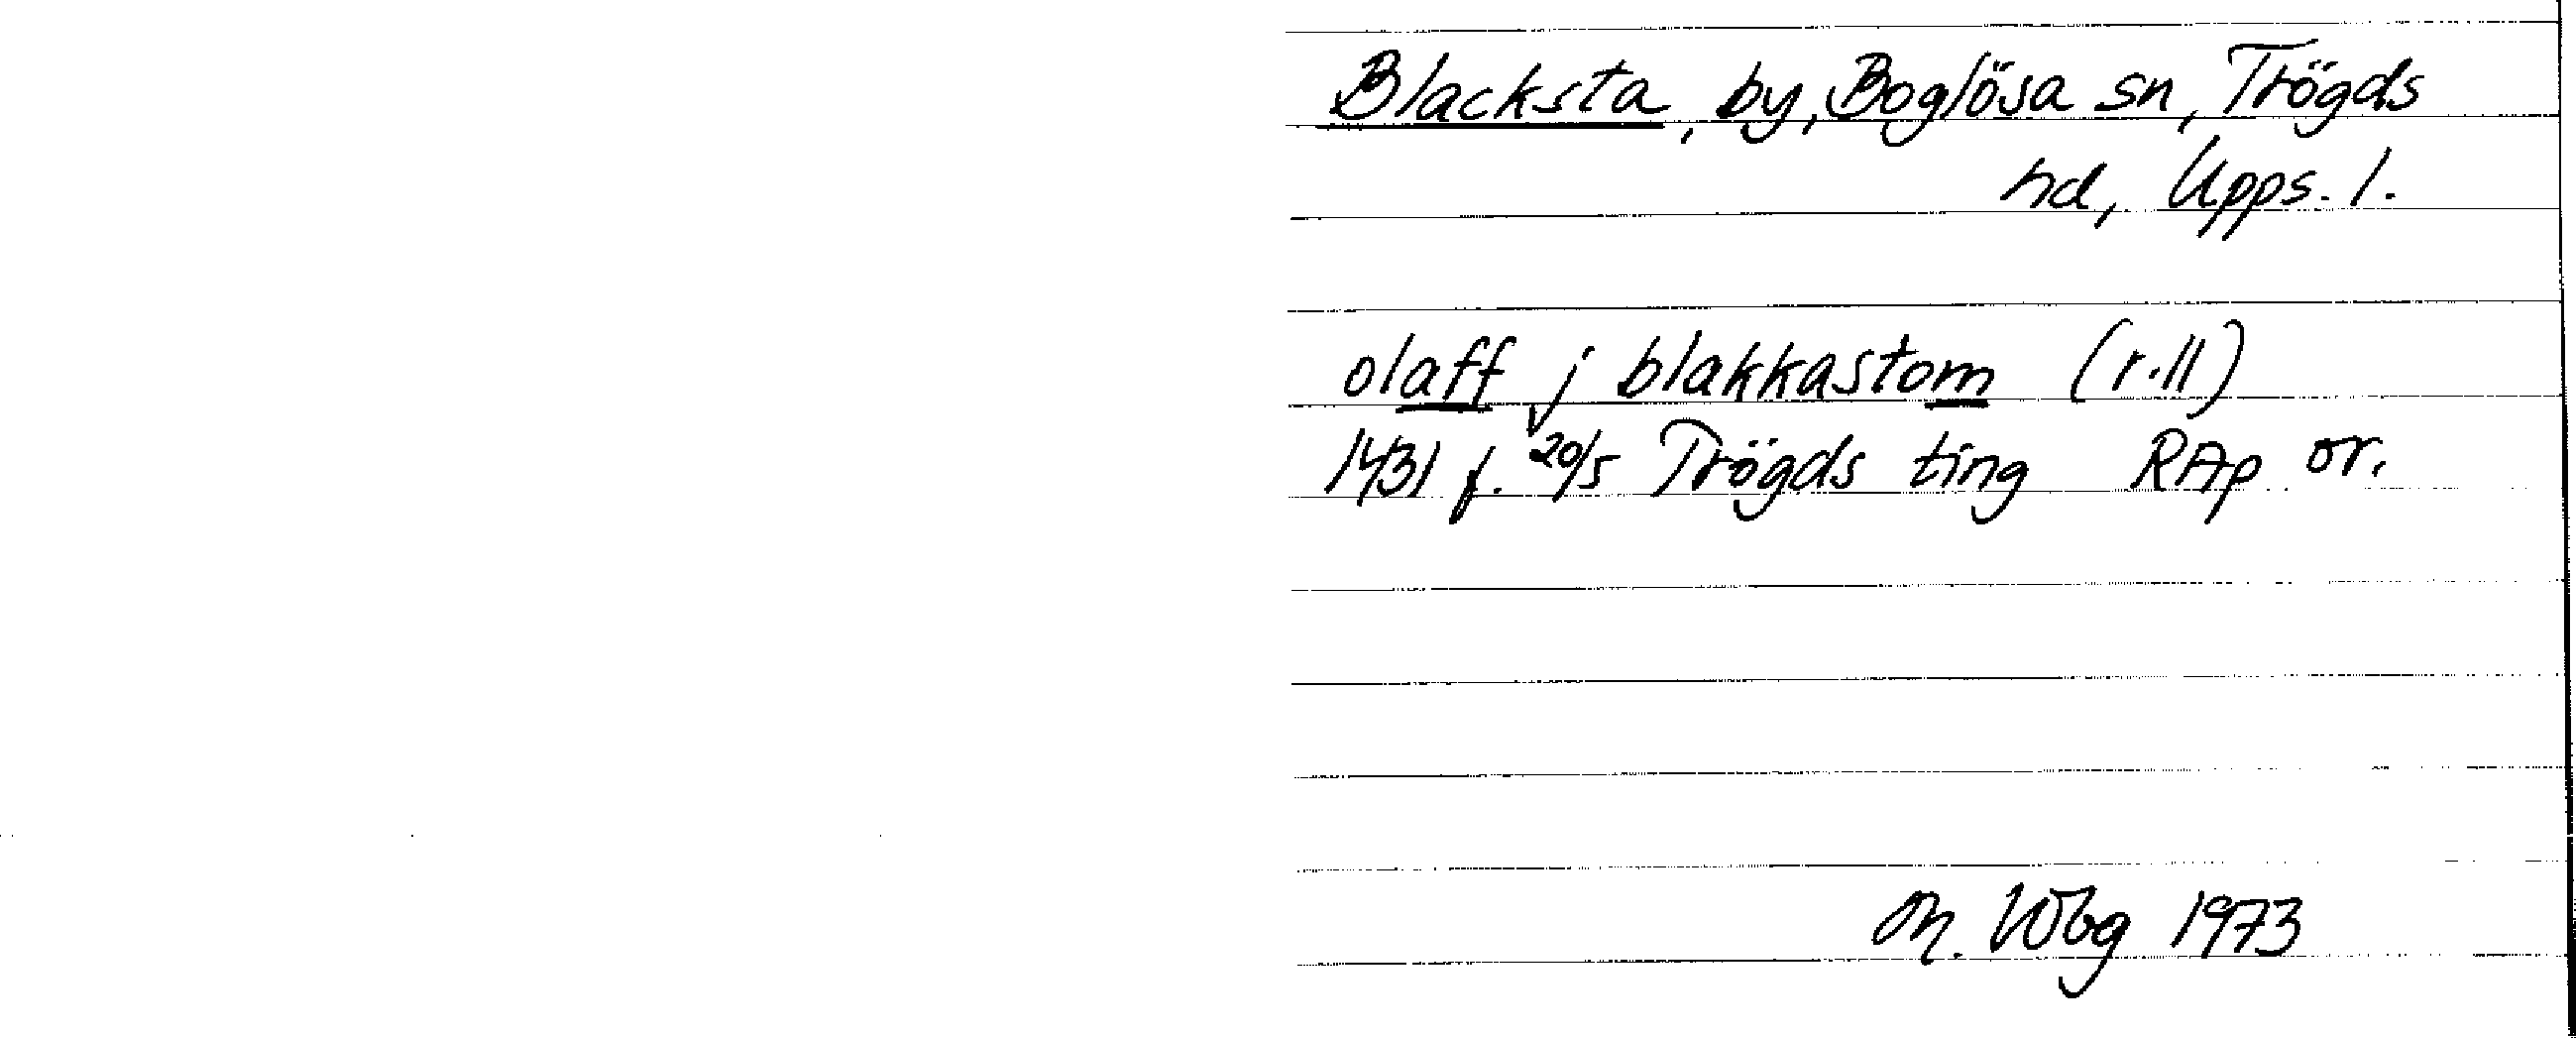 Blacksta, by, Boglösa sn, Trögds
hd, Upps. l.
olaff j blakkastom (r.11)
1431 f. 20/5 Trögds ting RAp or.
M. Wbg 1973